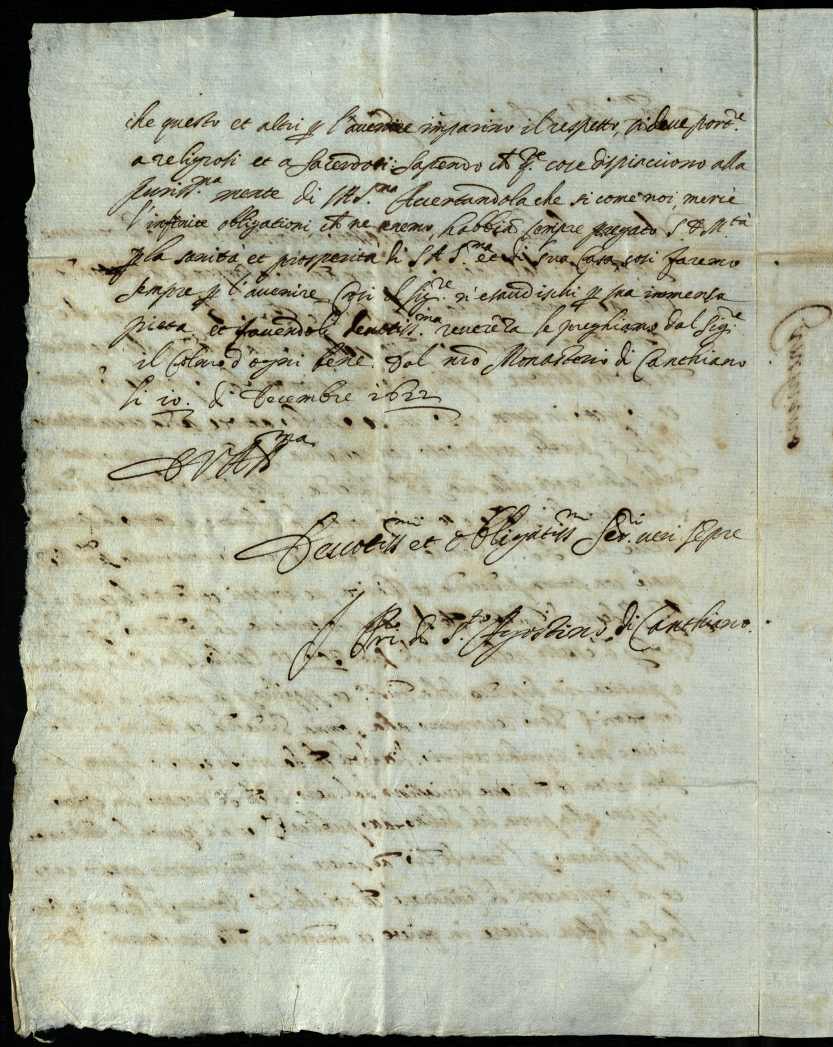 che questo et altri p l'avenire imparino il respetto, si deve port.re
a religiosi et a sacerdoti: sapendo ch q.e cose dispiacciono alla
Puriss.ma mente di S.A.S.ma Accertandola che si come noi, mercè
l'infinite obligationi ch ne tenemo, habbiã sempre pregato S.D.M.tà
p la sanità et prosperità di S.A.S.ma et di sua Casa, così faremo
sempre p l'avenire Così il Sig.re n'esaudischi p sua immensa
pietà et facendoli devotiss.ma reverẽza le preghiamo dal Sig.re
il Colmo d'ogni bene. Dal nrõ Monasterio di Canthiano
li 10. di Decembre 1622
D V A S.ma
Devotiss.mi et Obligatiss.mi Ser.ri veri sẽpre
I Pri di S.to Agostino di Canthiano.
Canthiano